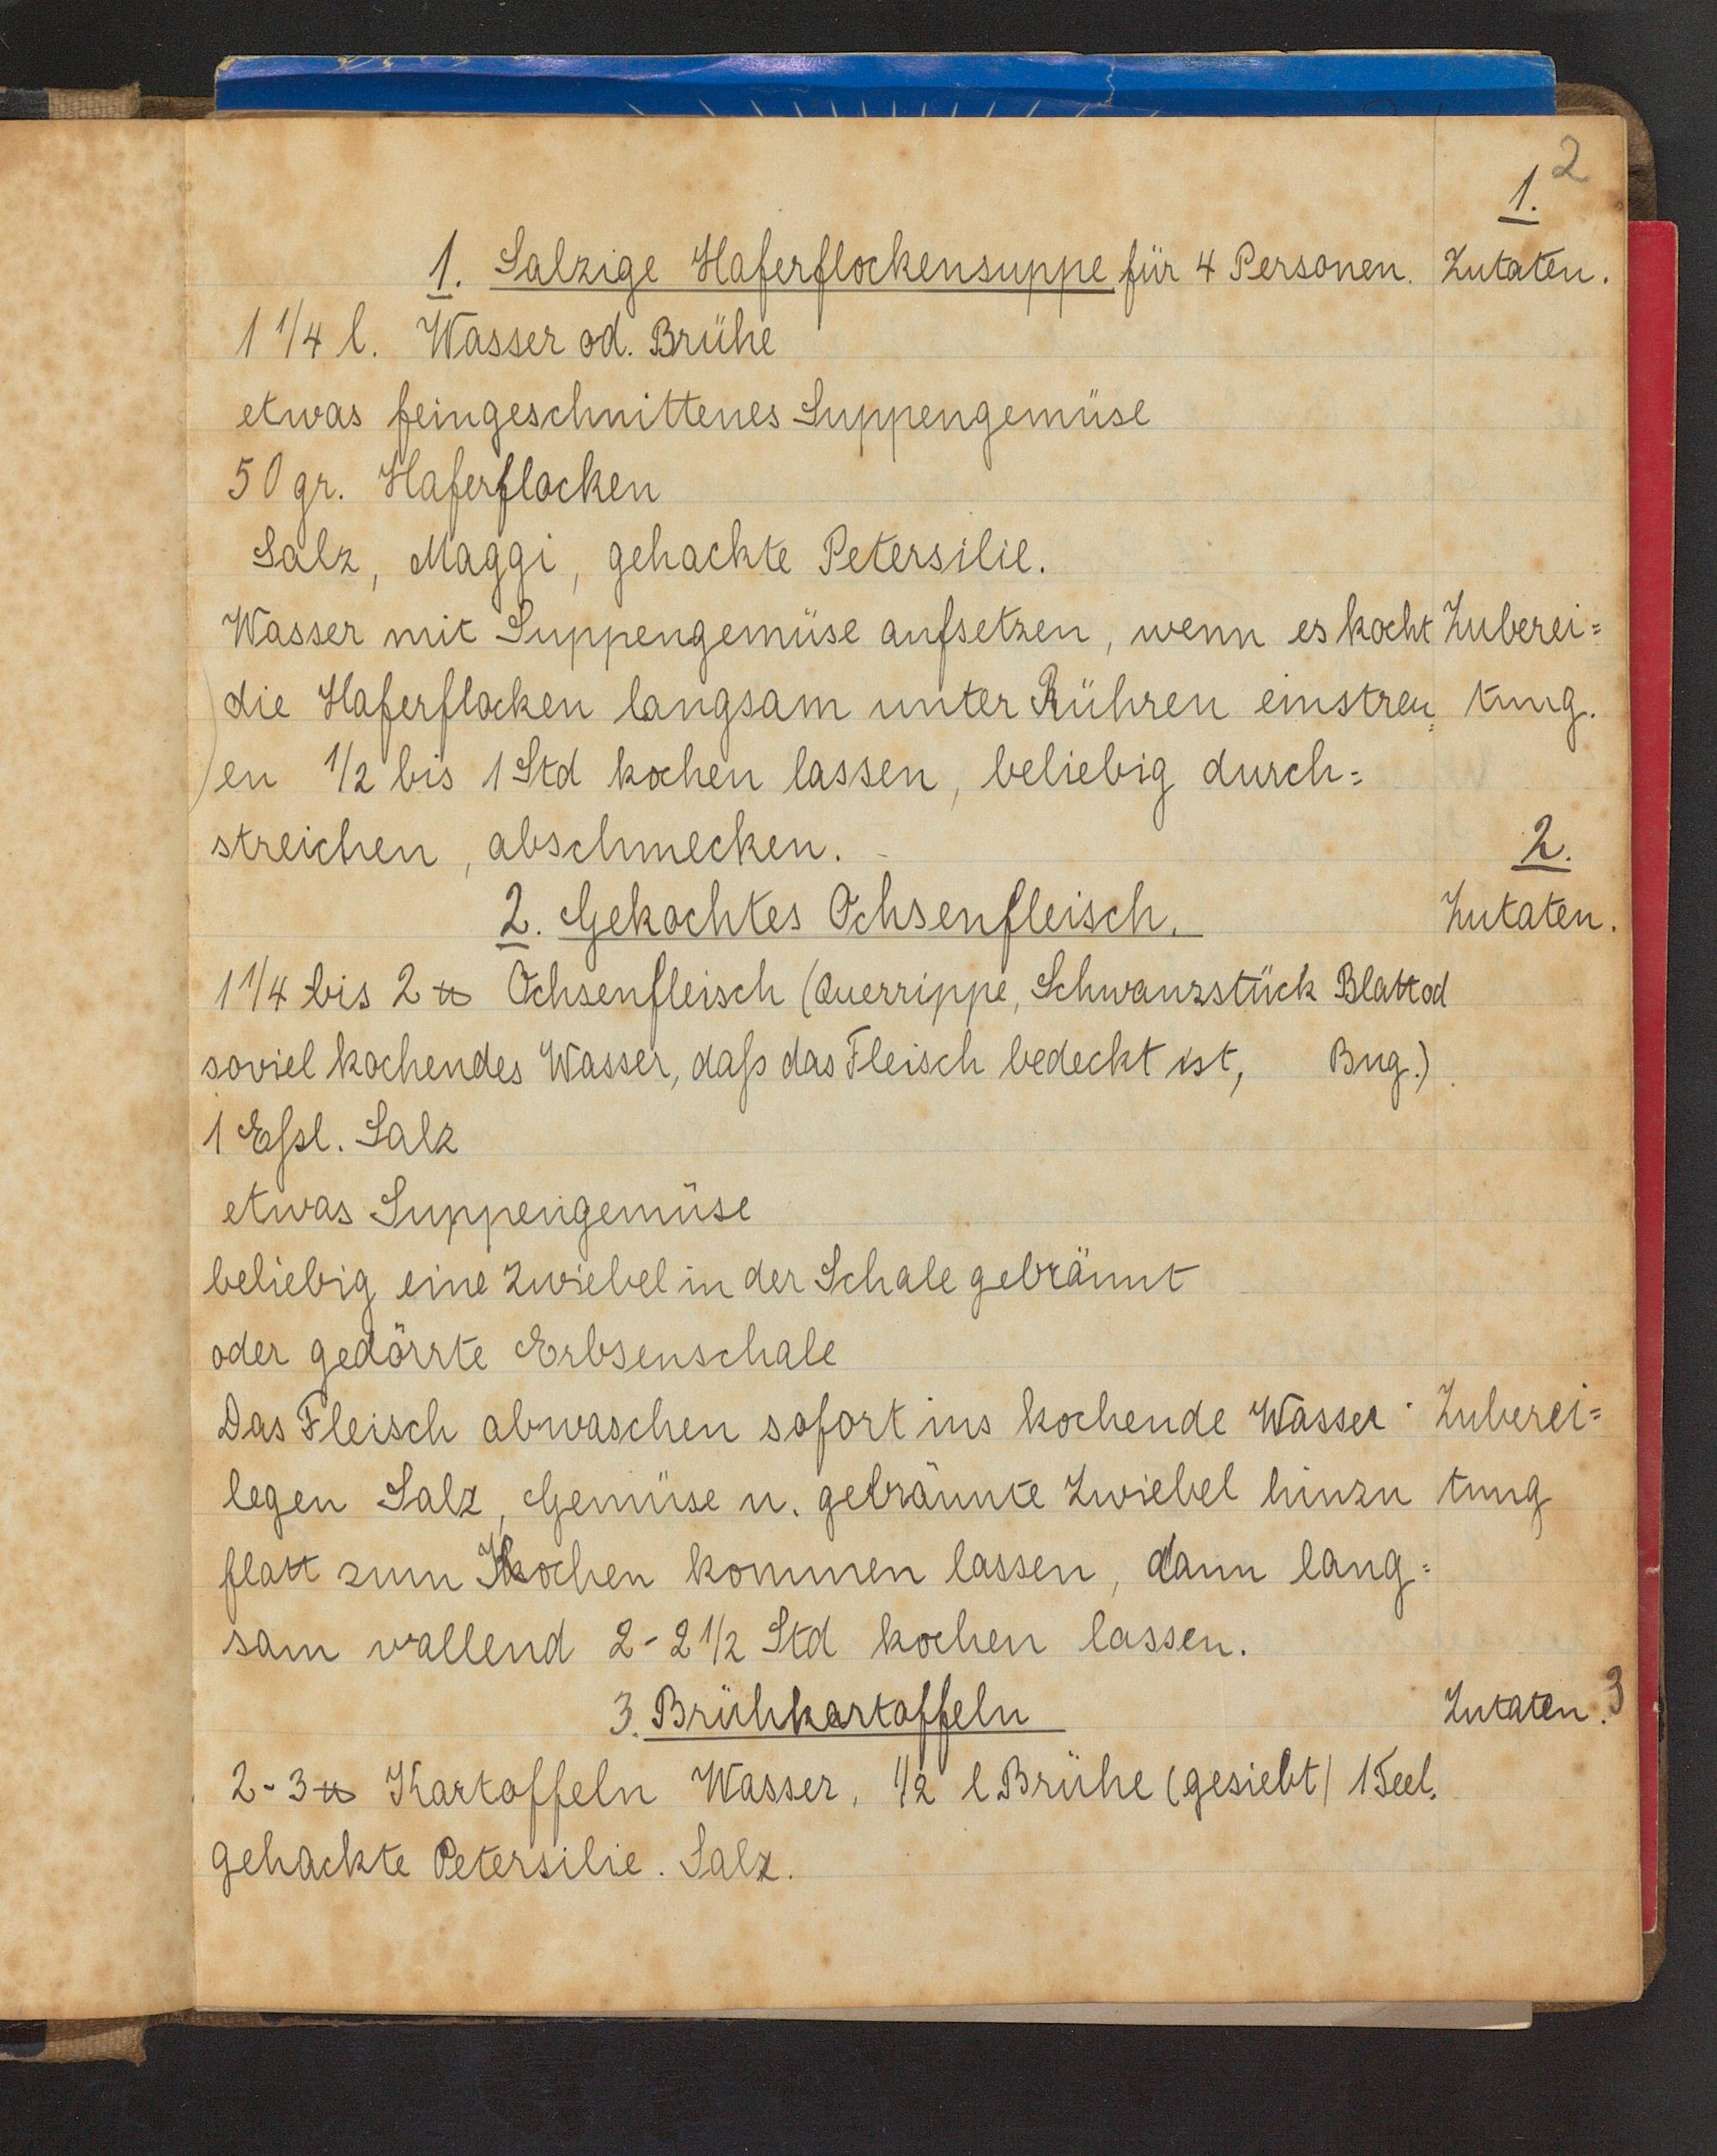 2
1.
1. Salzige Haferflockensuppe für 4 Personen. Zutaten.
1 1/4 l. Wasser od. Brühe
etwas feingeschnittenes Suppengemüse
50 gr. Haferflocken
Salz, Maggi, gehackte Petersilie.
Wasser mit Suppengemüse aufsetzen, wenn es kocht Zuberei=
die Haferflocken langsam unter Rühren einstreu= tung.
en 1/2 bis 1 Std kochen lassen, beliebig durch=
streichen, abschmecken. 2.
2. Gekochtes Ochsenfleisch. Zutaten.
1 1/4 bis 2 ℔ Ochsenfleisch (Querrippe, Schwanzstück Blatt od
soviel kochendes Wasser, daſs das Fleisch bedeckt ist, Bug.)
1 Eſsl. Salz
etwas Suppengemüse
beliebig eine Zwiebel in der Schale gebräunt
oder gedörrte Erbsenschale
Das Fleisch abwaschen sofort ins kochende Wasser Zuberei=
legen Salz, Gemüse u. gebräunte Zwiebel hinzu tung
flott zum Kochen kommen lassen, dann lang=
sam wallend 2-2 1/2 Std kochen lassen.
3. Brühkartoffeln Zutaten. 3
2-3 ℔ Kartoffeln Wasser, 1/2 l Brühe (gesiebt) 1 Teel.
gehackte Petersilie. Salz.